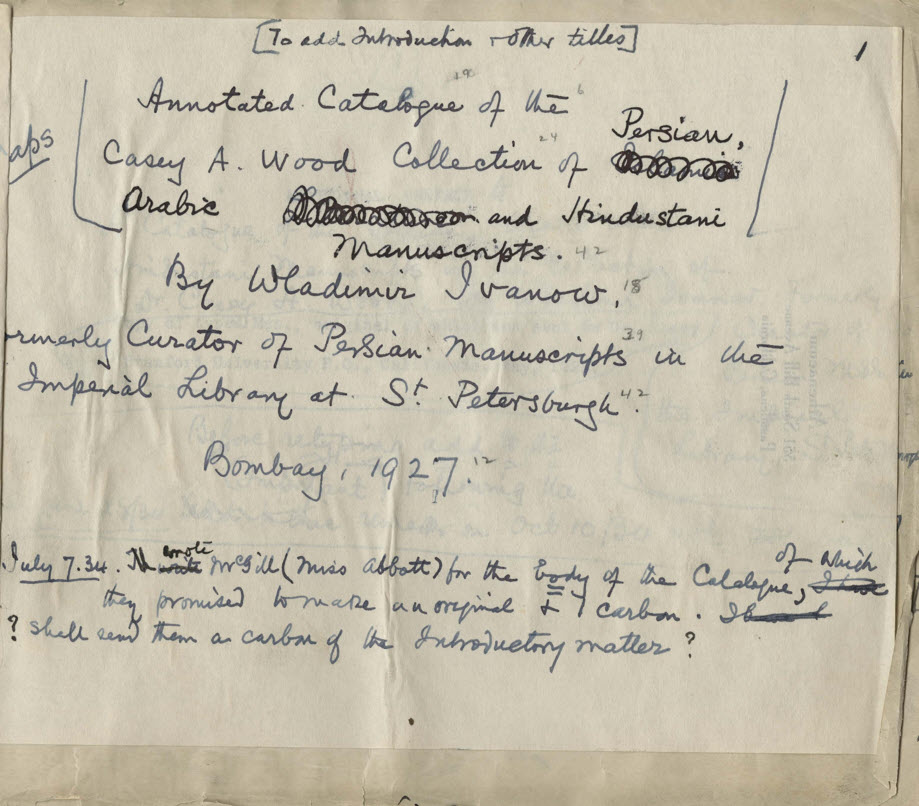 [To add Introduction + other titles]
1
Annotated Catalogue of the
aps
Persian,
Casey A. Wood Collection of
Arabic and Hindustani
Manuscripts. 42
By Wladimir Ivanow, 18
ormerly Curator of Persian Manuscripts in the 39
Imperial Library at St Petersburgh. 42
Bombay, 1927. 12
July 7.34. wrote McGill (Miss Abbott) for the Body of the Catalogue, of which I have
they promised to make an original + 1 carbon.
? shall send them a carbon of the Introductory matter?